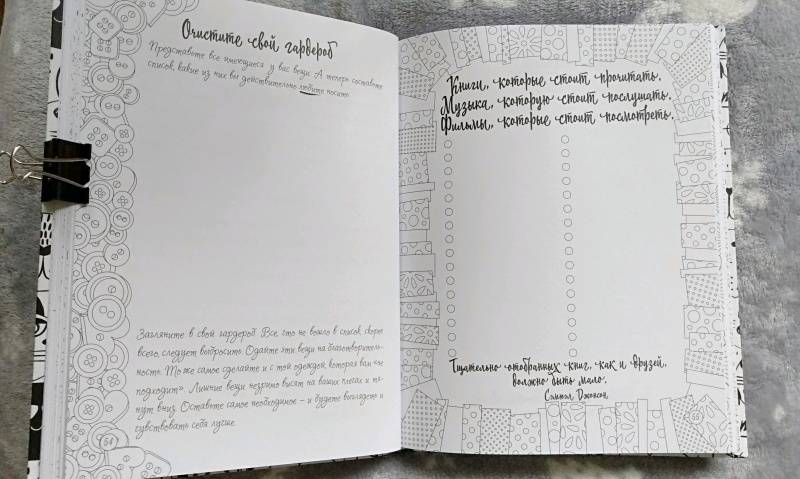 Очистите свой гардероб
Представьте все имеющиеся у вас вещи. А теперь составьте
список, какие из них вы действительно любите носить.
Загляните в свой гардероб. Все, что не вошло в список, скорее
всего, следует выбросить. Отдайте эти вещи на благотворитель-
ность. То же самое сделайте и с той одеждой, которая вам «не
подходит». Лишние вещи незримо висят на ваших плечах и тя-
нут вниз. Оставьте самое необходимое – и будете выглядеть и
чувствовать себя лучше.
54
Книги, которые стоит прочитать.
Музыка, которую стоит послушать.
Фильмы, которые стоит посмотреть.
Тщательно отобранных книг, как и друзей,
должно быть мало.
Сэмюэл Джонсон